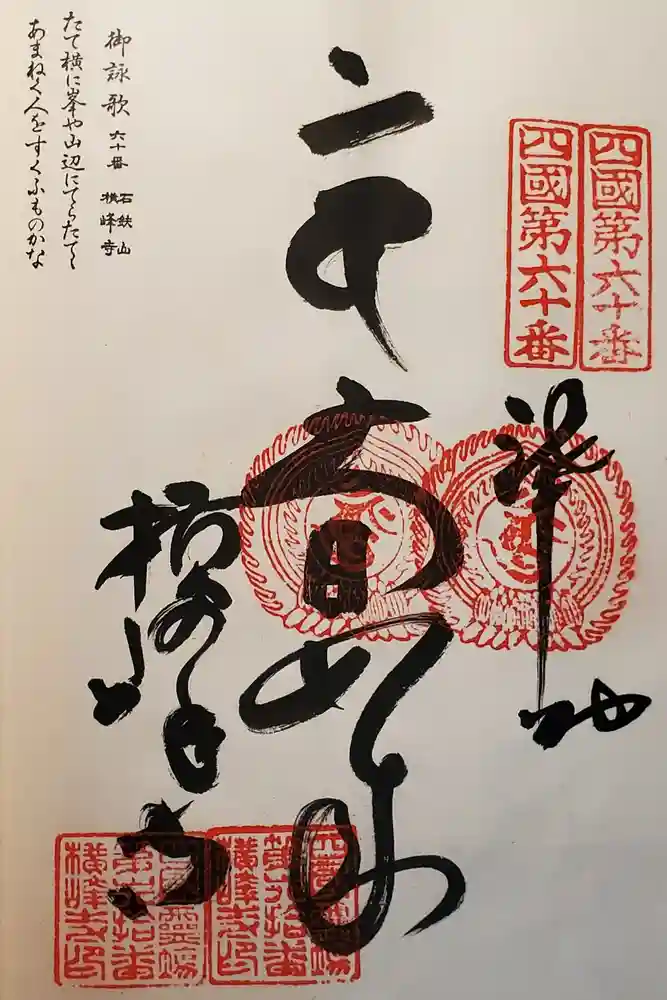 四國第六十番
四國第六十番
奉納
大日如来
横峰寺
御詠歌 六十番 石鈇山 横峰寺
たて横に峯や山辺にてらたてゝ
あまねく人をすくふものかな